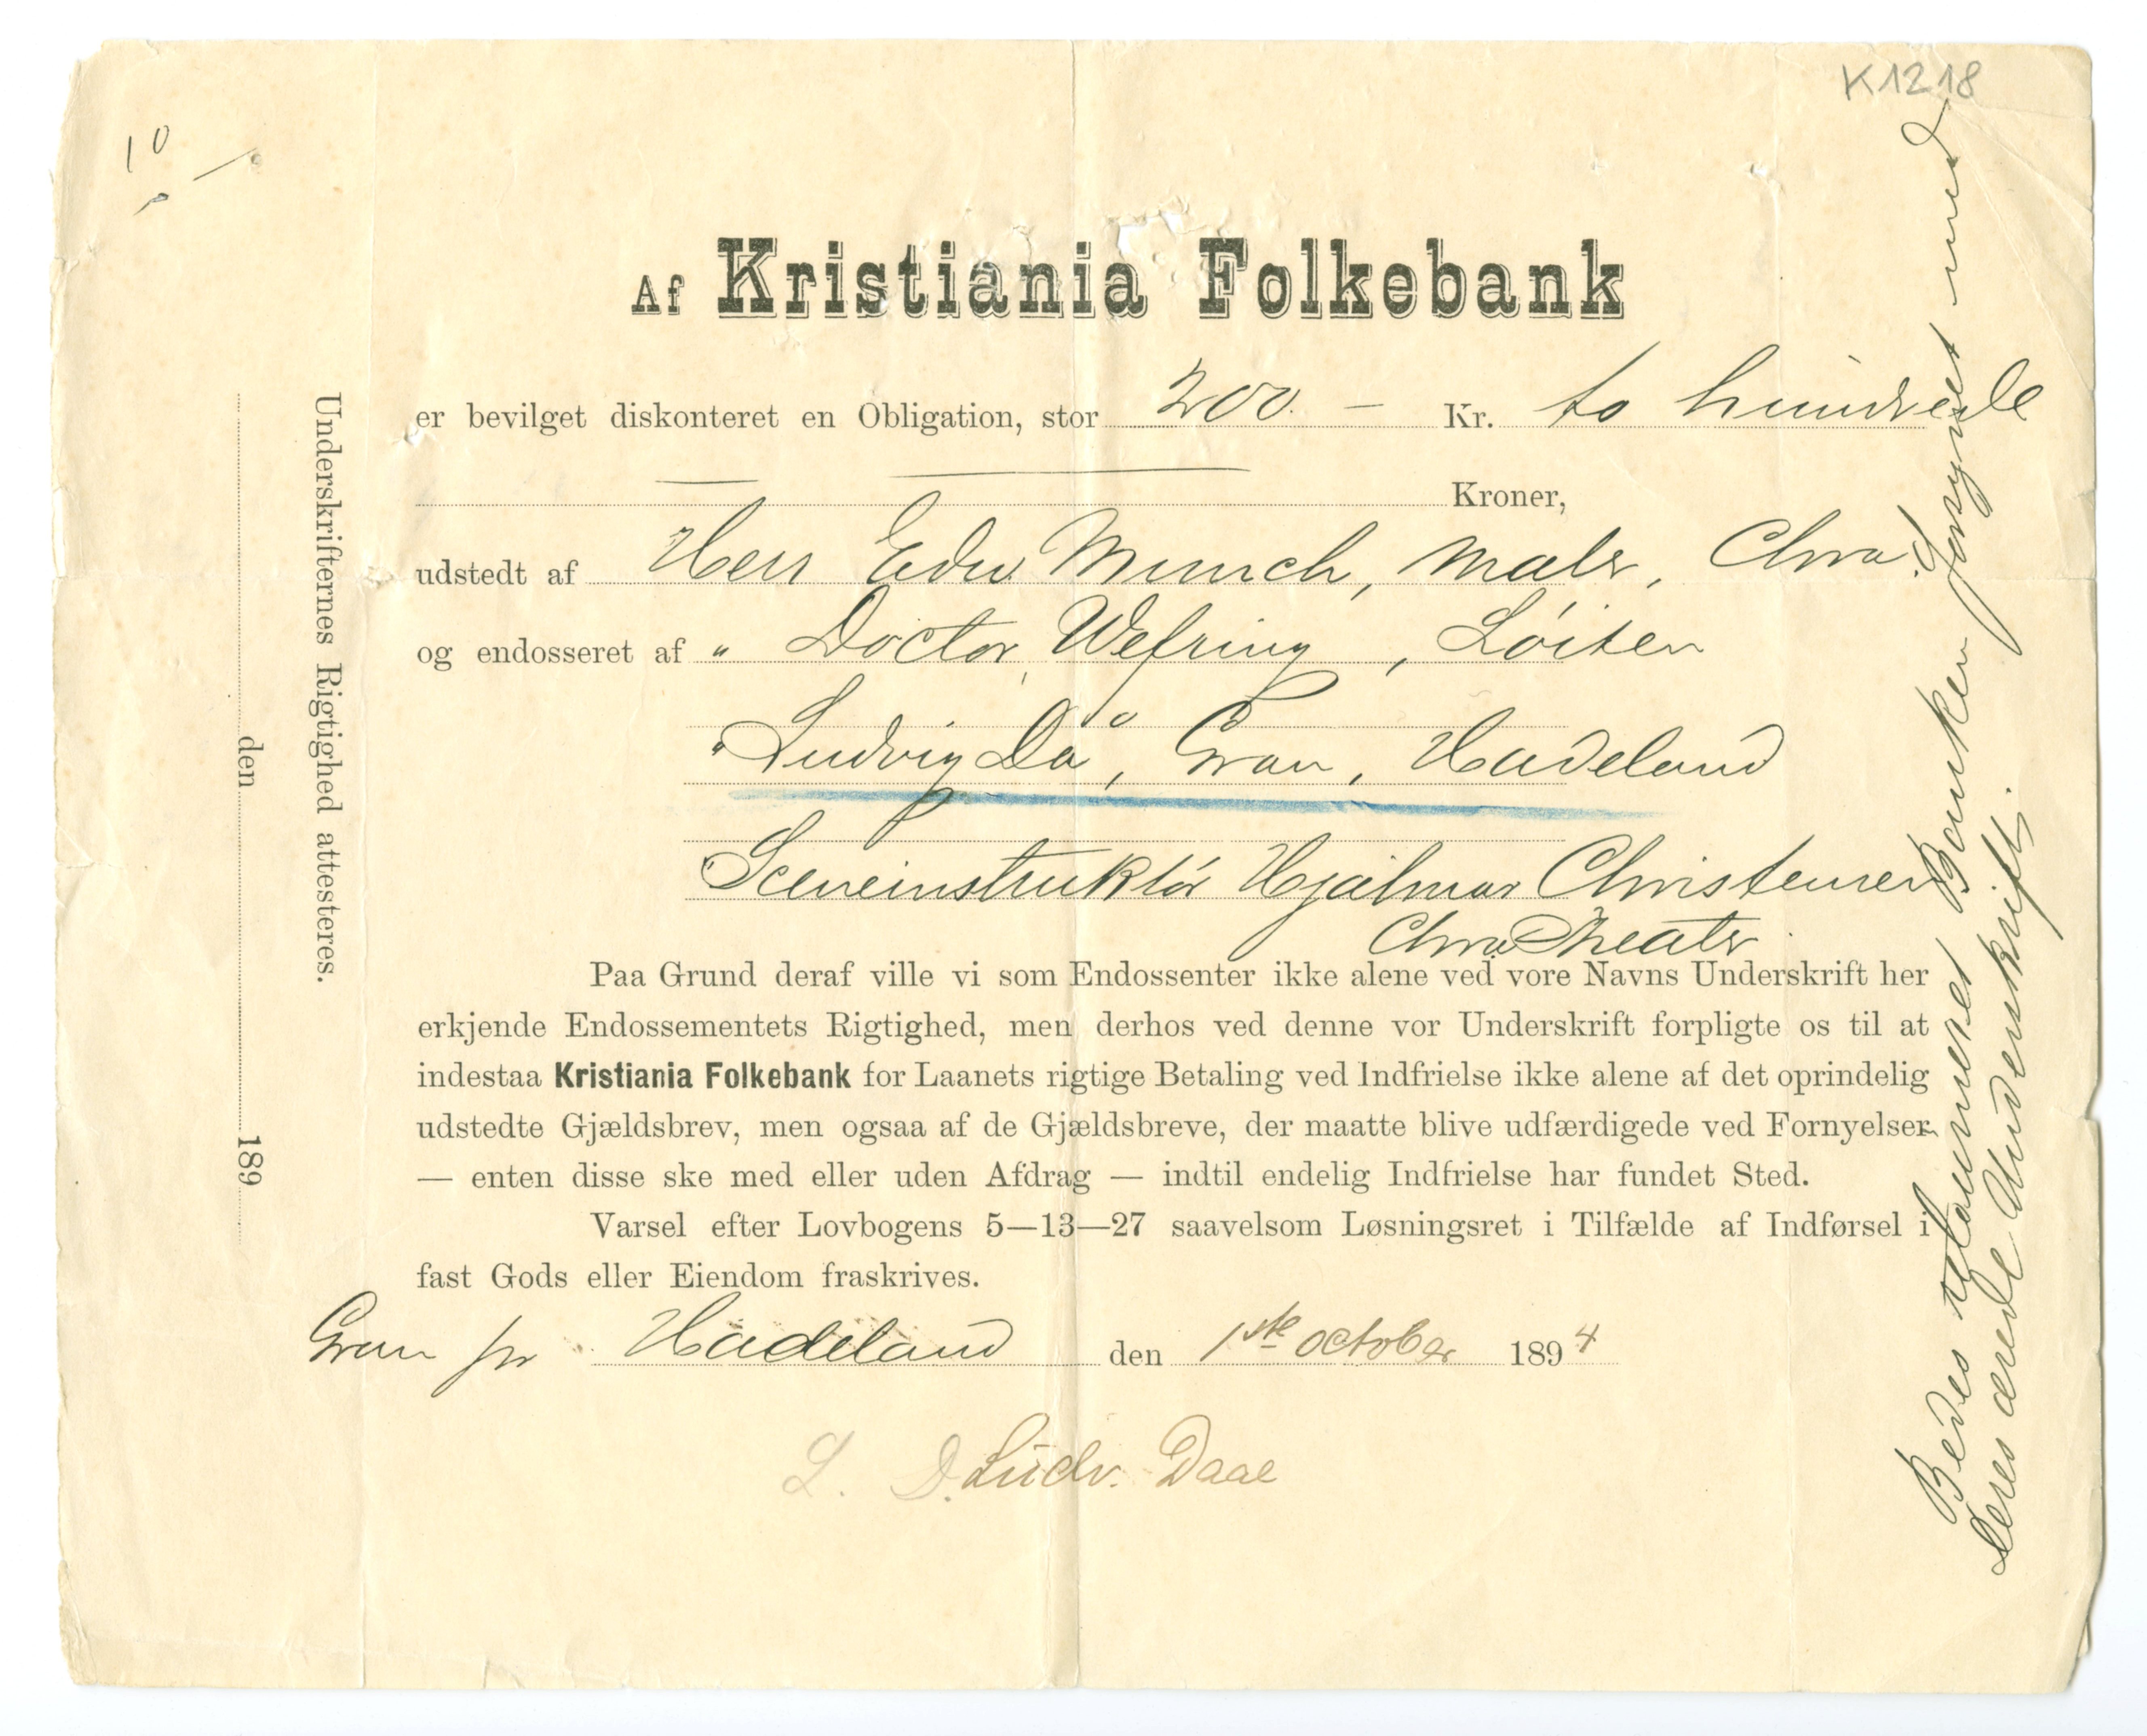 K1218
10
Af Kristiania Folkebank
er bevilget diskonteret en Obligation, stor 200. — Kr. to hundrede
Kroner,
udstedt af Herr Edv Munch, Maler, Chra.
og endosseret af " Doctor Wefring, Löiten
" Ludvig Då, Gran, Hadeland
" Sceneinstruktör Hjalmar Christensen
Chra Theater
Paa Grund deraf ville vi som Endossenter ikke alene ved vore Navns Underskrift her
erkjende Endossementets Rigtighed, men derhos ved denne vor Underskrift forpligte os til at
indestaa Kristiania Folkebank for Laanets rigtige Betaling ved Indfrielse ikke alene af det oprindelig
udstedte Gjældsbrev, men ogsaa af de Gjældsbreve, der maatte blive udfærdigede ved Fornyelser
— enten disse ske med eller uden Afdrag — indtil endelig Indfrielse har fundet Sted.
Varsel efter Lovbogens 5—13—27 saavelsom Løsningsret i Tilfælde af Indførsel i
fast Gods eller Eiendom fraskrives.
Gran pr Hadeland den 1ste october 1894
L. D. Ludv. Daae
Underskrifternes Rigtighed attesteres.
den 189
Bedes returneret Banken forsynet med
Deres ærede Underskrift.